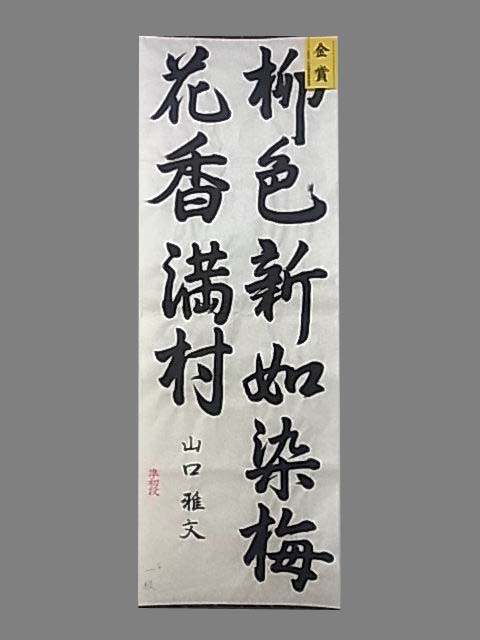 金賞
柳色新如染梅
花香満村
山口雅文
準初段
一級